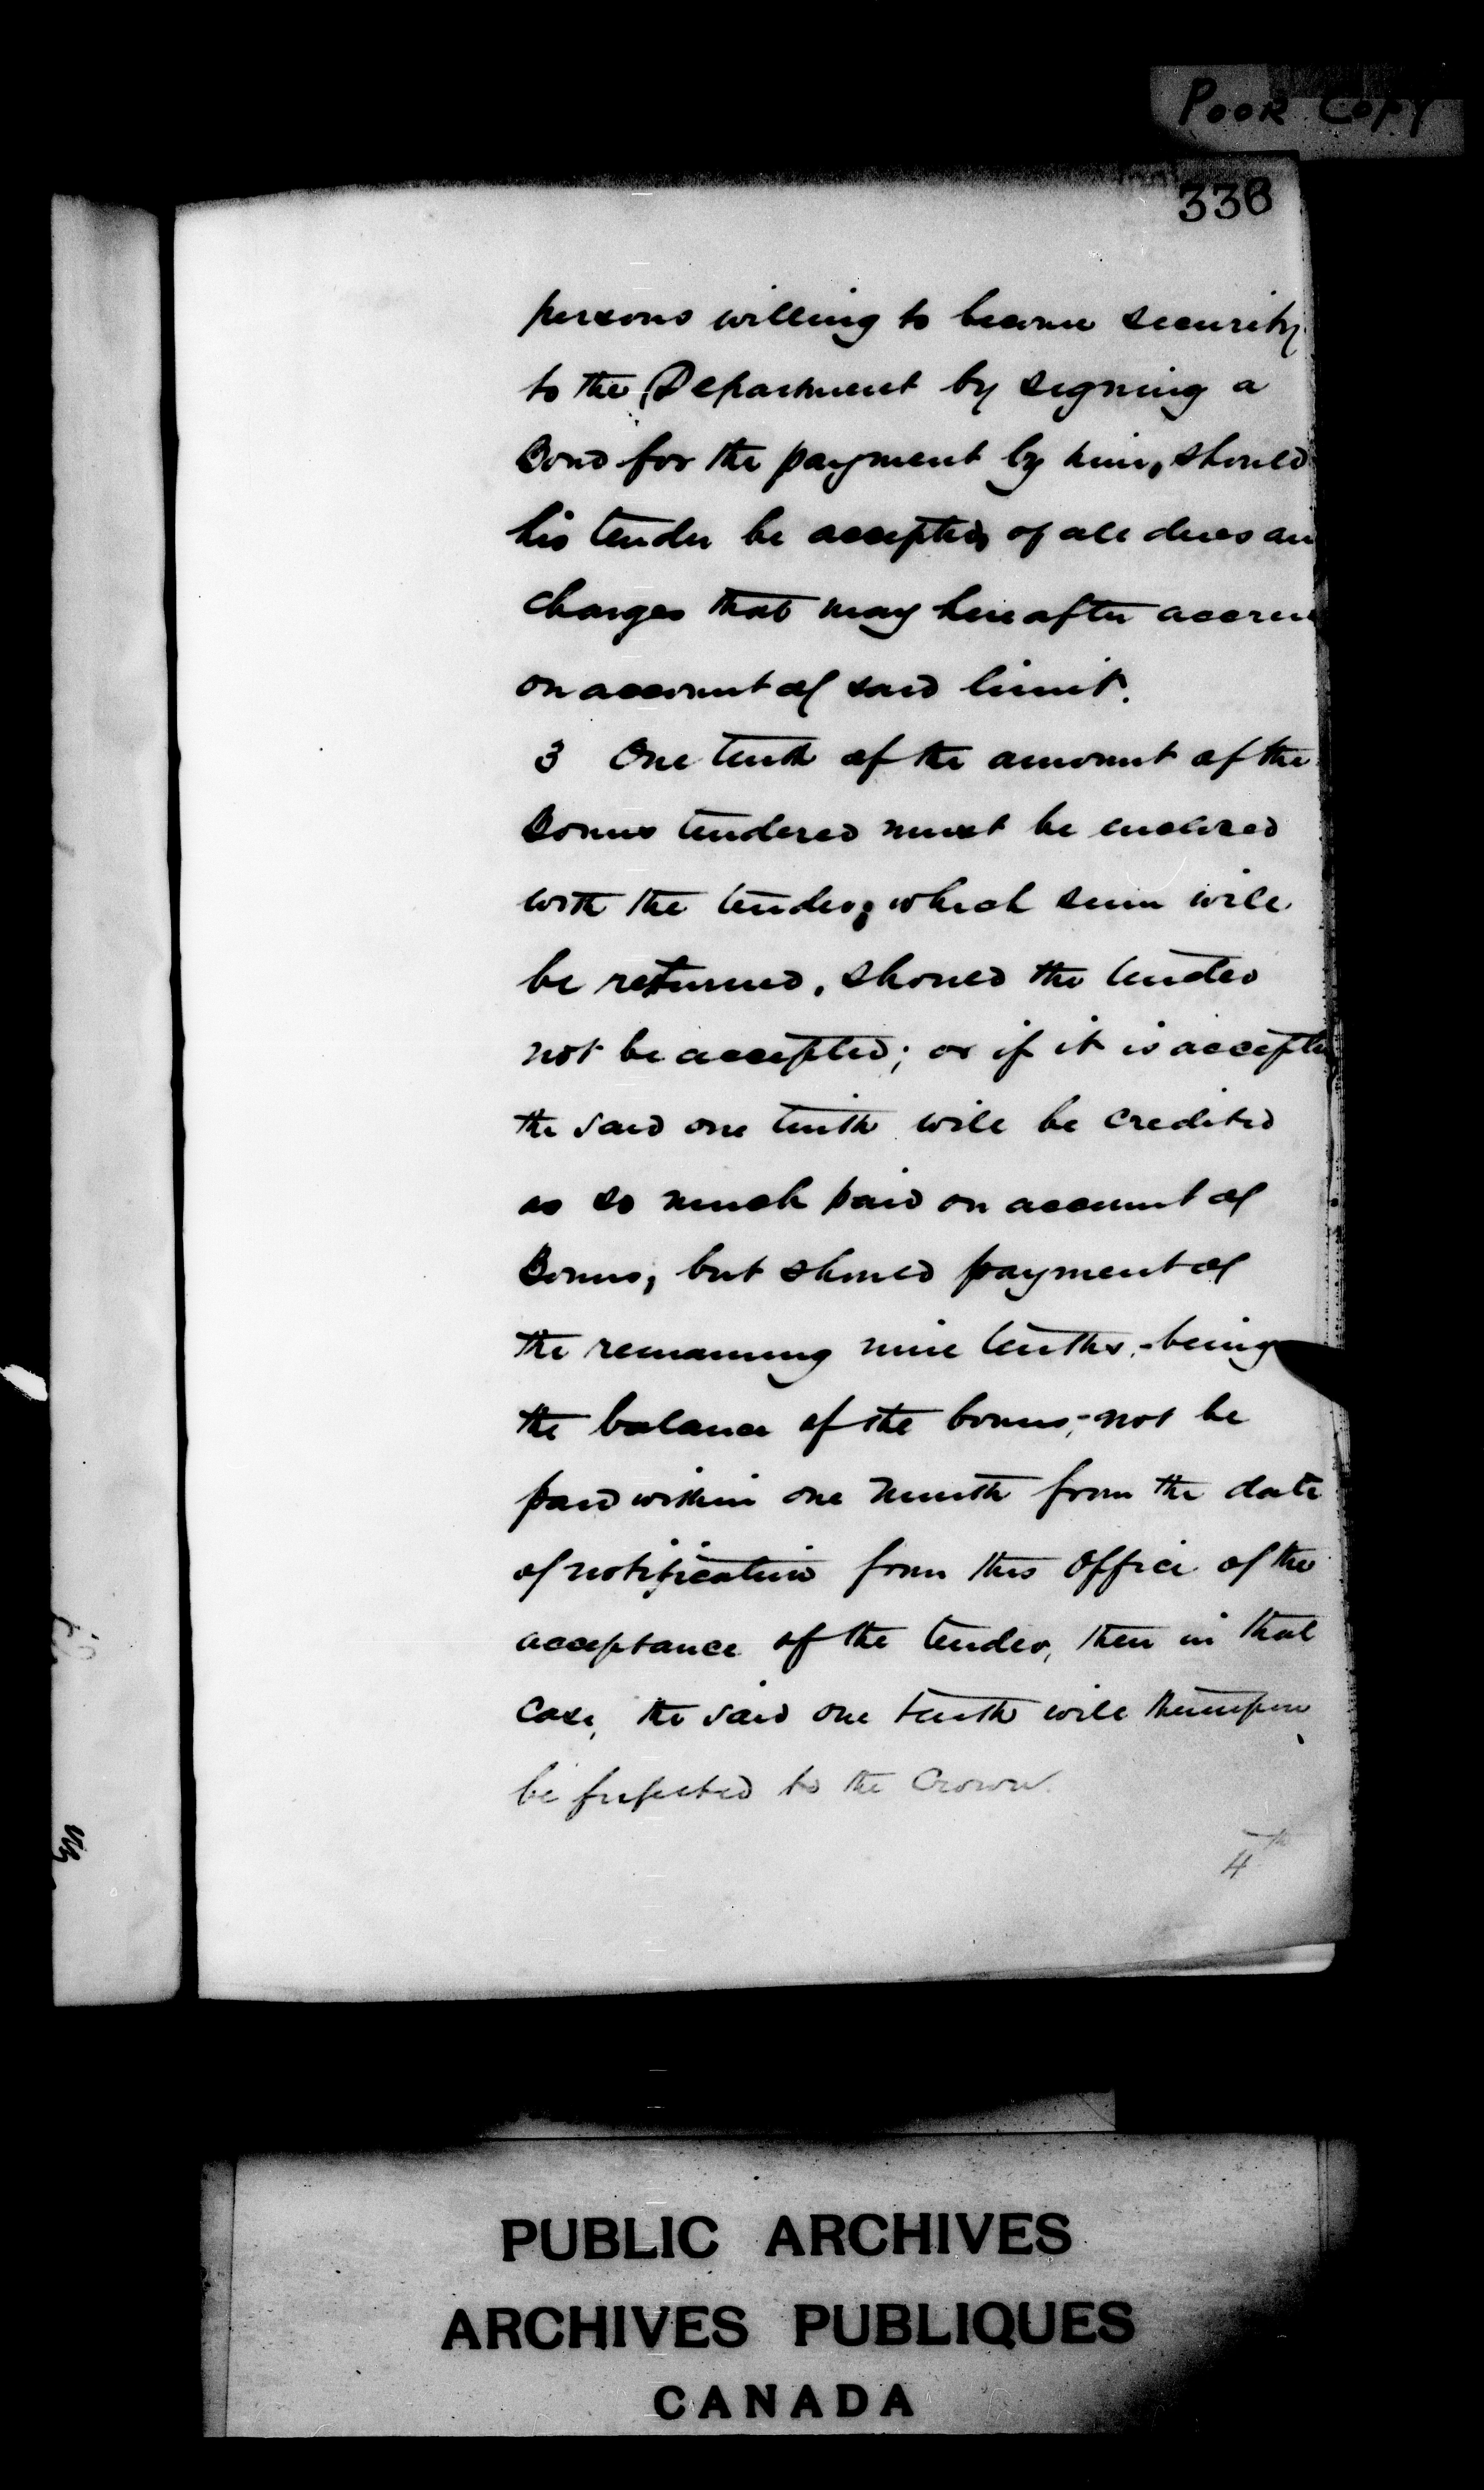 POOR COPY
336
persons willing to become security
to the Department by signing a
Bond for the payment by him, should
his tender be accepted, of all dues an
charges that may hereafter accrue
on account of said limit.
3 One tenth of the amount of the
Bonus tendered must be enclosed
with the tender; which sum will
be returned, should the tender
not be accepted; or if it is accepted
the said one tenth will be credited
as so much paid on account of
Bonus; but should payment of
the remaining nine tenths,-being
the balance of the bonus,-not be
paid within one month from the date
of notification from this Office of the
acceptance of the tender, then in that
case, the said one tenth will thereupon
be forfeited to the Crown.
4th
PUBLIC ARCHIVES
ARCHIVES PUBLIQUES
CANADA